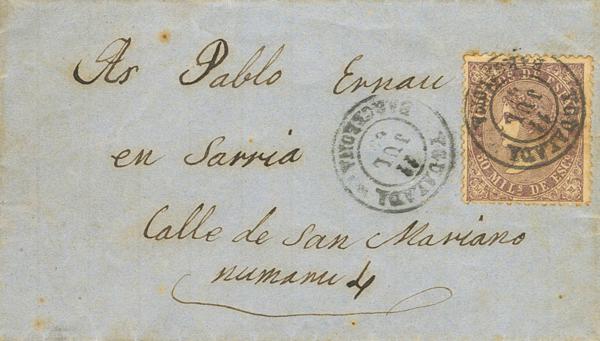 As Pablo Ernau
en Sarria
Calle de San Mariano
numanu 4
YGUALADA
BARCELONA
11
JUL
50 MILS DE ESC